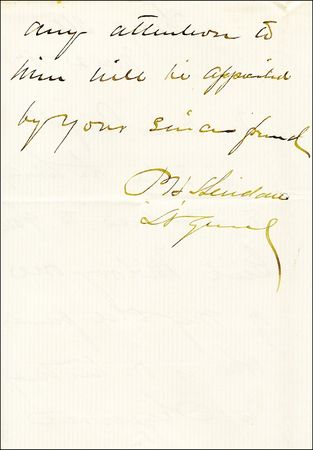 any attention to
him will be appreciated
by your sincere friend
P H Sheridan
Lt General